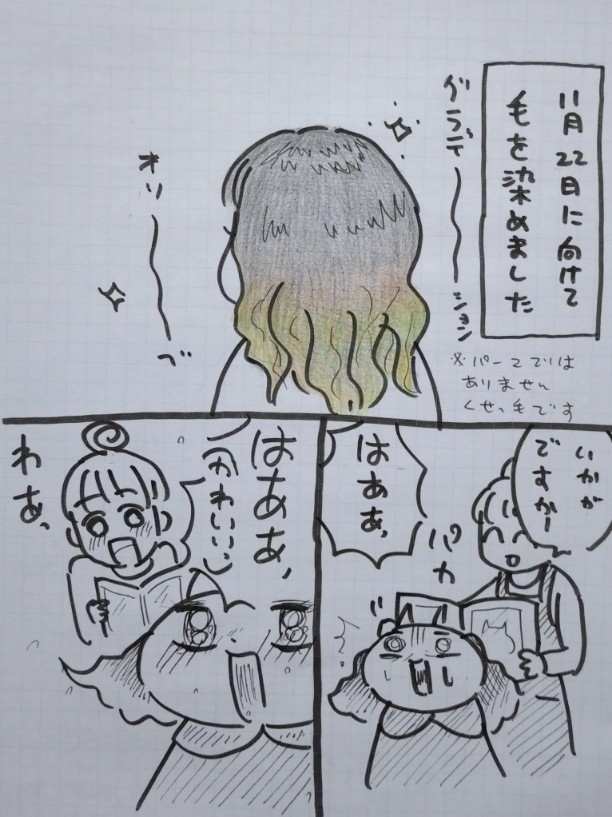 11月22日に向けて
毛を染めました
グラデ〜ション
オリ〜ブ
※パーマでは
ありません
くせっ毛です
いかが
ですかー
パカ
はぁぁ、
はあぁ、
かわいい
わぁ、